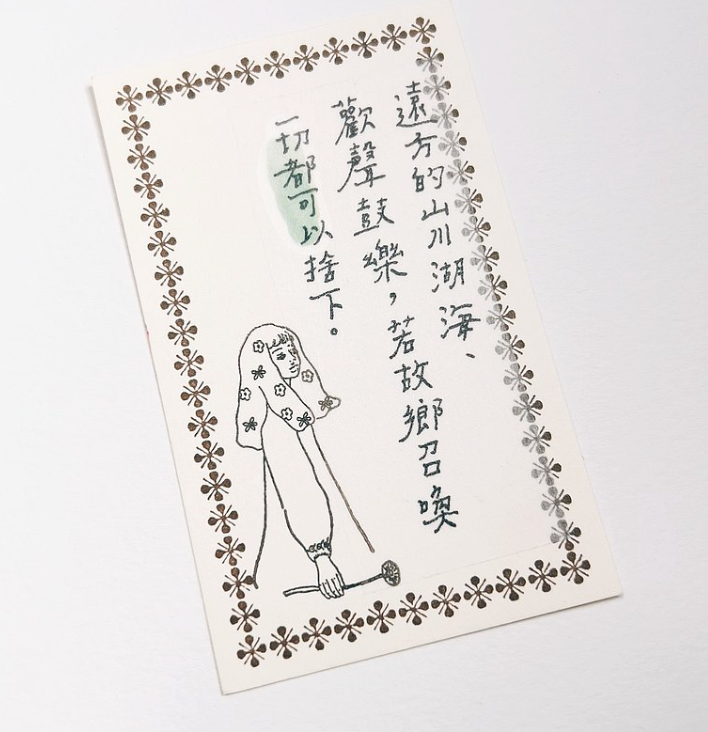 遠方的山川湖海、
歡聲鼓樂，若故鄉召喚
一切都可以捨下。